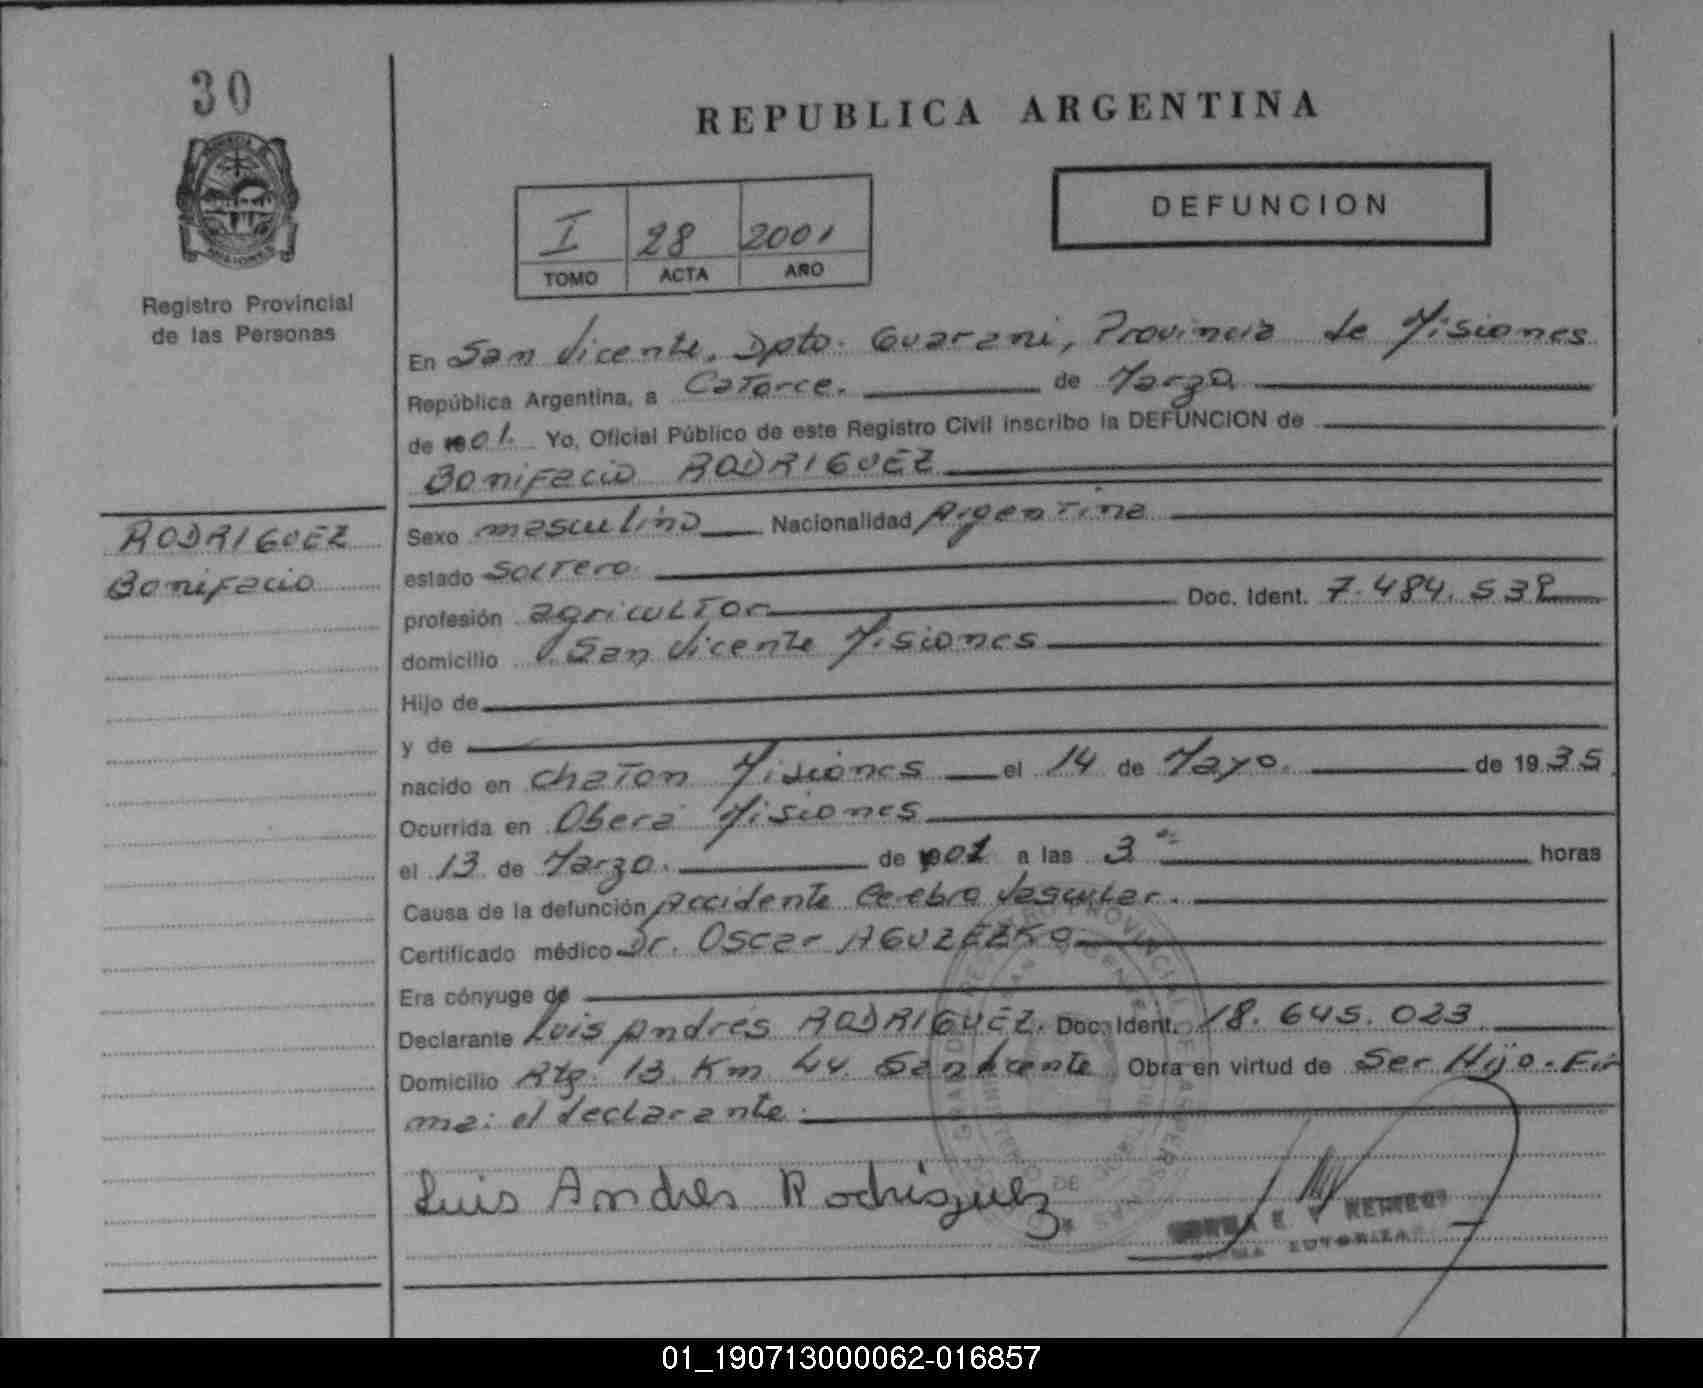 30
REPUBLICA ARGENTINA
DEFUNCION
I 28 2001
TOMO ACTA AÑO
Registro Provincial
de las Personas
En San Vicente, Dpto. Guarani, Provincia de Misiones
República Argentina, a Catorce. de Marzo
de 01. Yo, Oficial Público de este Registro Civil inscribo la DEFUNCION de
Bonifacio RODRIGUEZ
RODRIGUEZ
Bonifacio
Sexo masculino Nacionalidad Argentina
estado soltero.
profesión agricultor Doc. Ident. 7.484.538
domicilio San Vicente Misiones
Hijo de
y de
nacido en Chaton Misiones el 14 de Mayo. de 1935
Ocurrida en Oberá Misiones
el 13 de Marzo. de 01 a las 3 horas
Causa de la defunción Accidente Cerebro Vascular.
Certificado médico Dr. Oscar
Era cónyuge de
Declarante Luis Andrés RODRIGUEZ. Doc. Ident. 18.645.023
Domicilio Rta. 13 Km 44 San Vicente Obra en virtud de Ser Hijo. Fir
ma: el declarante.
Luis Andres Rodriguez
01_190713000062-016857